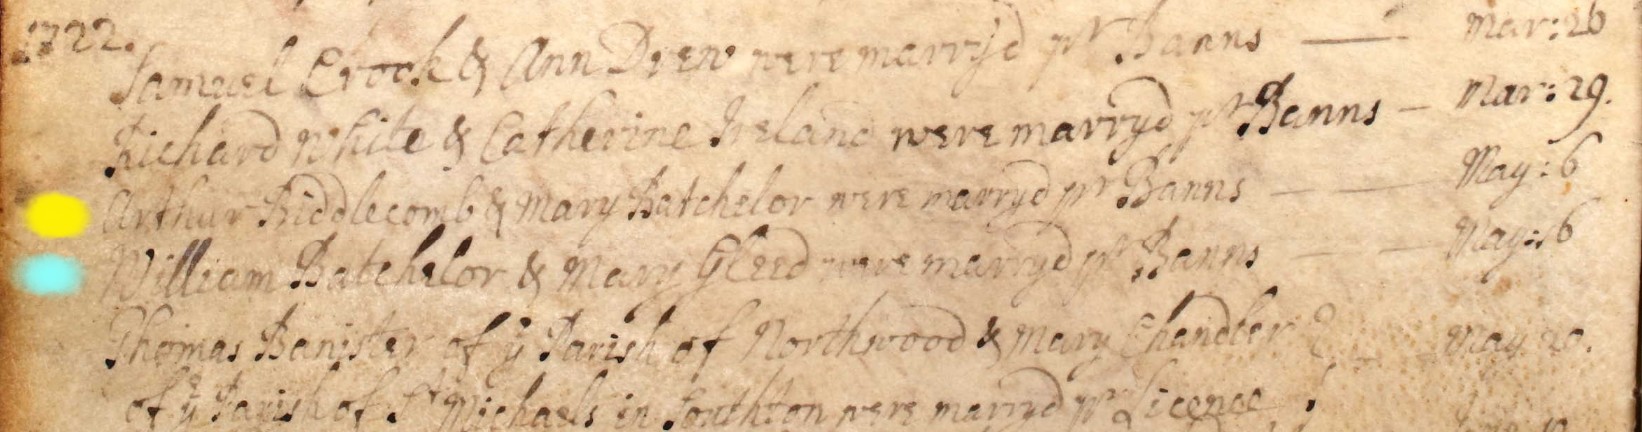 1722.
Samuel Crook & Ann Drew were marryd pr Banns — Mar: 26
Richard White & Catherine Ireland were marryd pr Banns — Mar: 29.
Arthur Riddlecomb & Mary Batchelor were marryd pr Banns — May: 6
William Batchelor & Mary Gleed were marryd pr Banns — May: 16
Thomas Banister of ye Parish of Northwood & Mary Chandler May 20.
of ye Parish of St Michaels in Southton were marryd pr Licence